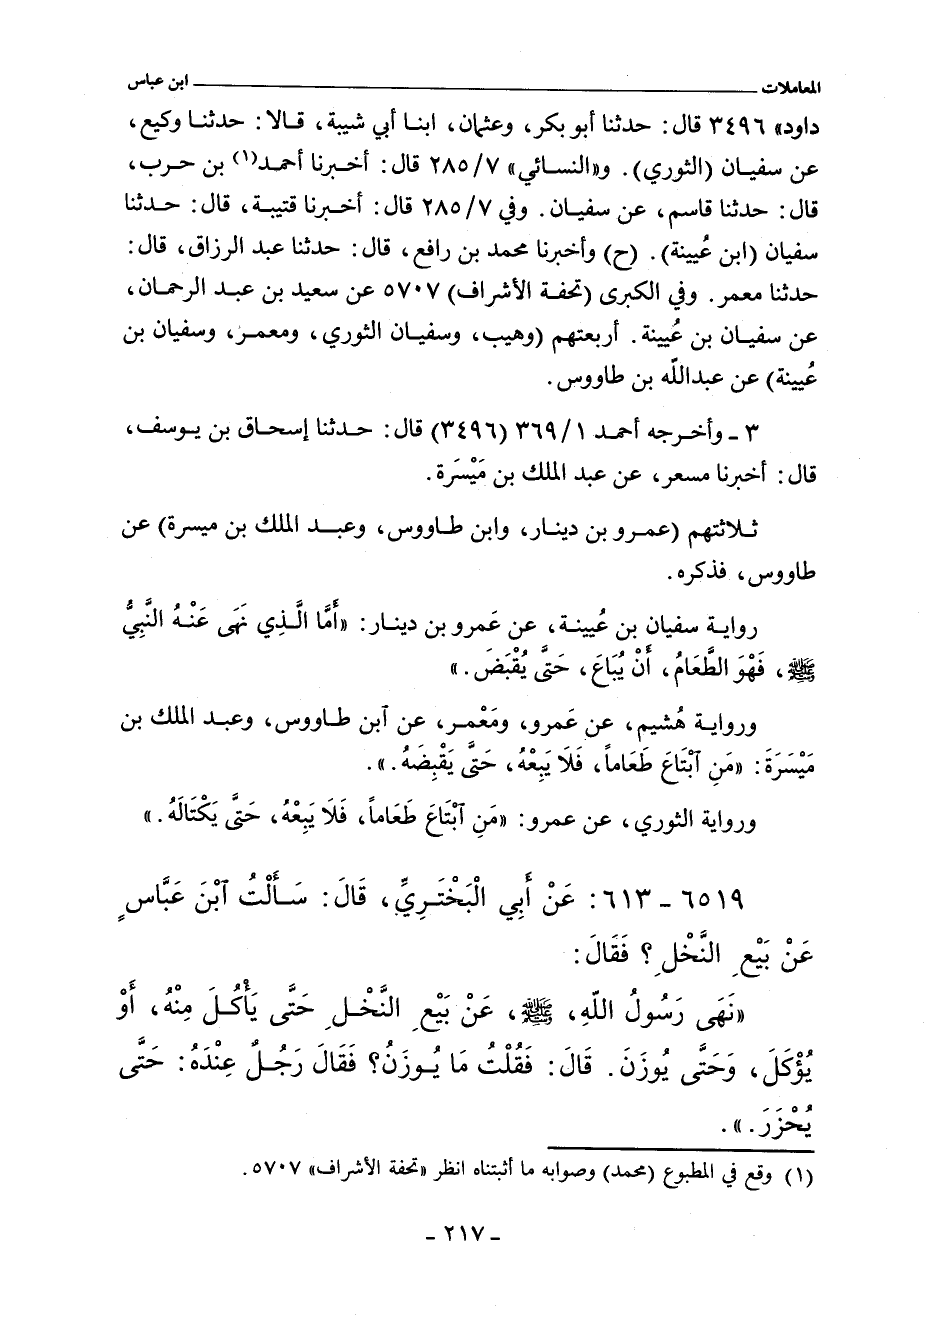 المعاملات ــــــــــــــــ ابن عباس
داود» ٣٤٩٦ قال: حدثنا أبو بكر، وعثمان، ابنا أبي شيبة، قالا: حدثنا وكيع،
عن سفيان (الثوري). و«النسائي» ٢٨٥/٧ قال: أخبرنا أحمد(١) بن حرب،
قال: حدثنا قاسم، عن سفيان. وفي ٢٨٥/٧ قال: أخبرنا قتيبة، قال: حدثنا
سفيان (ابن عُيينة). (ح) وأخبرنا محمد بن رافع، قال: حدثنا عبد الرزاق، قال:
حدثنا معمر. وفي الكبرى (تحفة الأشراف) ٥٧٠٧ عن سعيد بن عبد الرحمان،
عن سفيان بن عُيينة. أربعتهم (وهيب، وسفيان الثوري، ومعمر، وسفيان بن
عُيينة) عن عبدالله بن طاووس.
٣ ـ وأخرجه أحمد ٣٦٩/١ (٣٤٩٦) قال: حدثنا إسحاق بن يوسف،
قال: أخبرنا مسعر، عن عبد الملك بن مَيْسَرة.
ثلاثتهم (عمرو بن دينار، وابن طاووس، وعبد الملك بن ميسرة) عن
طاووس، فذكره.
رواية سفيان بن عُيينة، عن عَمرو بن دينار: «أَمَّا الَّذِي نَهَى عَنْهُ النَّبِيُّ
ﷺ، فَهْوَ الطَّعَامُ، أَنْ يُبَاعَ، حَتَّى يُقْبَضَ.»
ورواية هُشيم، عن عَمرو، ومَعْمر، عن ٱبن طاووس، وعبد الملك بن
مَيْسَرَةَ: «مَنِ ٱبْتَاعَ طَعَاماً، فَلَا يَبِعْهُ، حَتَّى يَقْبِضَهُ.».
ورواية الثوري، عن عمرو: «مَنِ ٱبْتَاعَ طَعَاماً، فَلَا يَبِعْهُ، حَتَّى يَكْتَالَهُ.»
٦٥١٩ ـ ٦١٣: عَنْ أَبِي الْبَخْتَرِيِّ، قَالَ: سَأَلْتُ ٱبْنَ عَبَّاسٍ
عَنْ بَيْعِ النَّخْلِ؟ فَقَالَ:
«نَهَى رَسُولُ اللّهِ، ﷺ، عَنْ بَيْعِ النَّخْلِ حَتَّى يَأْكُلَ مِنْهُ، أَوْ
يُؤْكَلَ، وَحَتَّى يُوزَنَ. قَالَ: فَقُلْتُ مَا يُوزَنُ؟ فَقَالَ رَجُلٌ عِنْدَهُ: حَتَّى
يُحْزَرَ.».
(١) وقع في المطبوع (محمد) وصوابه ما أثبتناه انظر «تحفة الأشراف» ٥٧٠٧.
ـ ٢١٧ ـ